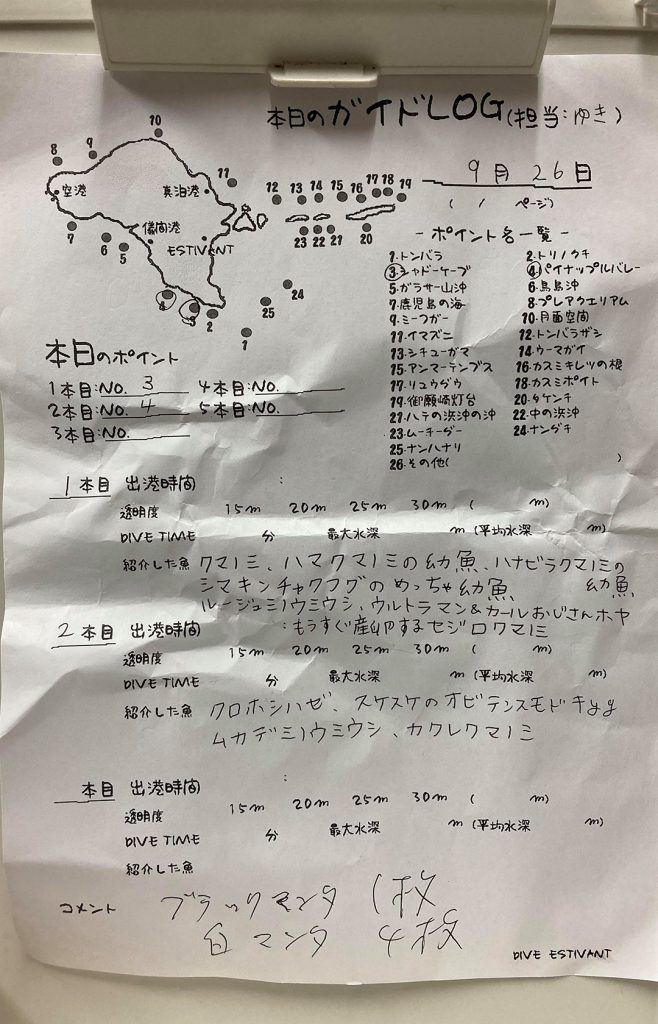 本日のガイドLOG(担当:ゆき)
9月26日
( / ページ)
10
8
9
空港
真泊港
11
12 13 14 15 16 17 18 19
7
6
5
儀間港
ESTIVANT
23 22 21
20
24
4
3
2
25
1
- ポイント名一覧 -
1.トンバラ 2.トリノクチ
3.シャドーケーブ 4.パイナップルバレー
5.ガラサー山沖 6.鳥島沖
7.鹿児島の海 8.プレアクエリアム
9.ミーフガー 10.月面空間
11.イマズニ 12.トンバラザシ
13.シチューガマ 14.ウーマガイ
15.アンマーテンプス 16.カスミキレツの根
17.リュウグウ 18.カスミポイト
19.御願崎灯台 20.タケンチ
21.ハテの浜沖の沖 22.中の浜沖
23.ムーチーグー 24.ナンダチ
25.ナンハナリ
26.その他( )
本日のポイント
1本目:NO. 3 4本目:NO.
2本目:NO. 4 5本目:NO.
3本目:NO.
1本目 出港時間 :
透明度 15m 20m 25m 30m ( m)
DIVE TIME 分 最大水深 m (平均水深 m)
紹介した魚 クマノミ、ハマクマノミの幼魚、ハナビラクマノミの
シマキンチャクフグのめっちゃ幼魚 幼魚
ルージュミノウミウシ、ウルトラマン&カールおじさんホヤ
2本目 出港時間 : もうすぐ産卵するセジロクマノミ
透明度 15m 20m 25m 30m ( m)
DIVE TIME 分 最大水深 m (平均水深 m)
紹介した魚 クロホシハゼ、スケスケのオビテンスモドキyg
ムカデミノウミウシ、カクレクマノミ
本目 出港時間 :
透明度 15m 20m 25m 30m ( m)
DIVE TIME 分 最大水深 m (平均水深 m)
紹介した魚
コメント ブラックマンタ 1枚
白マンタ 4枚
DIVE ESTIVANT